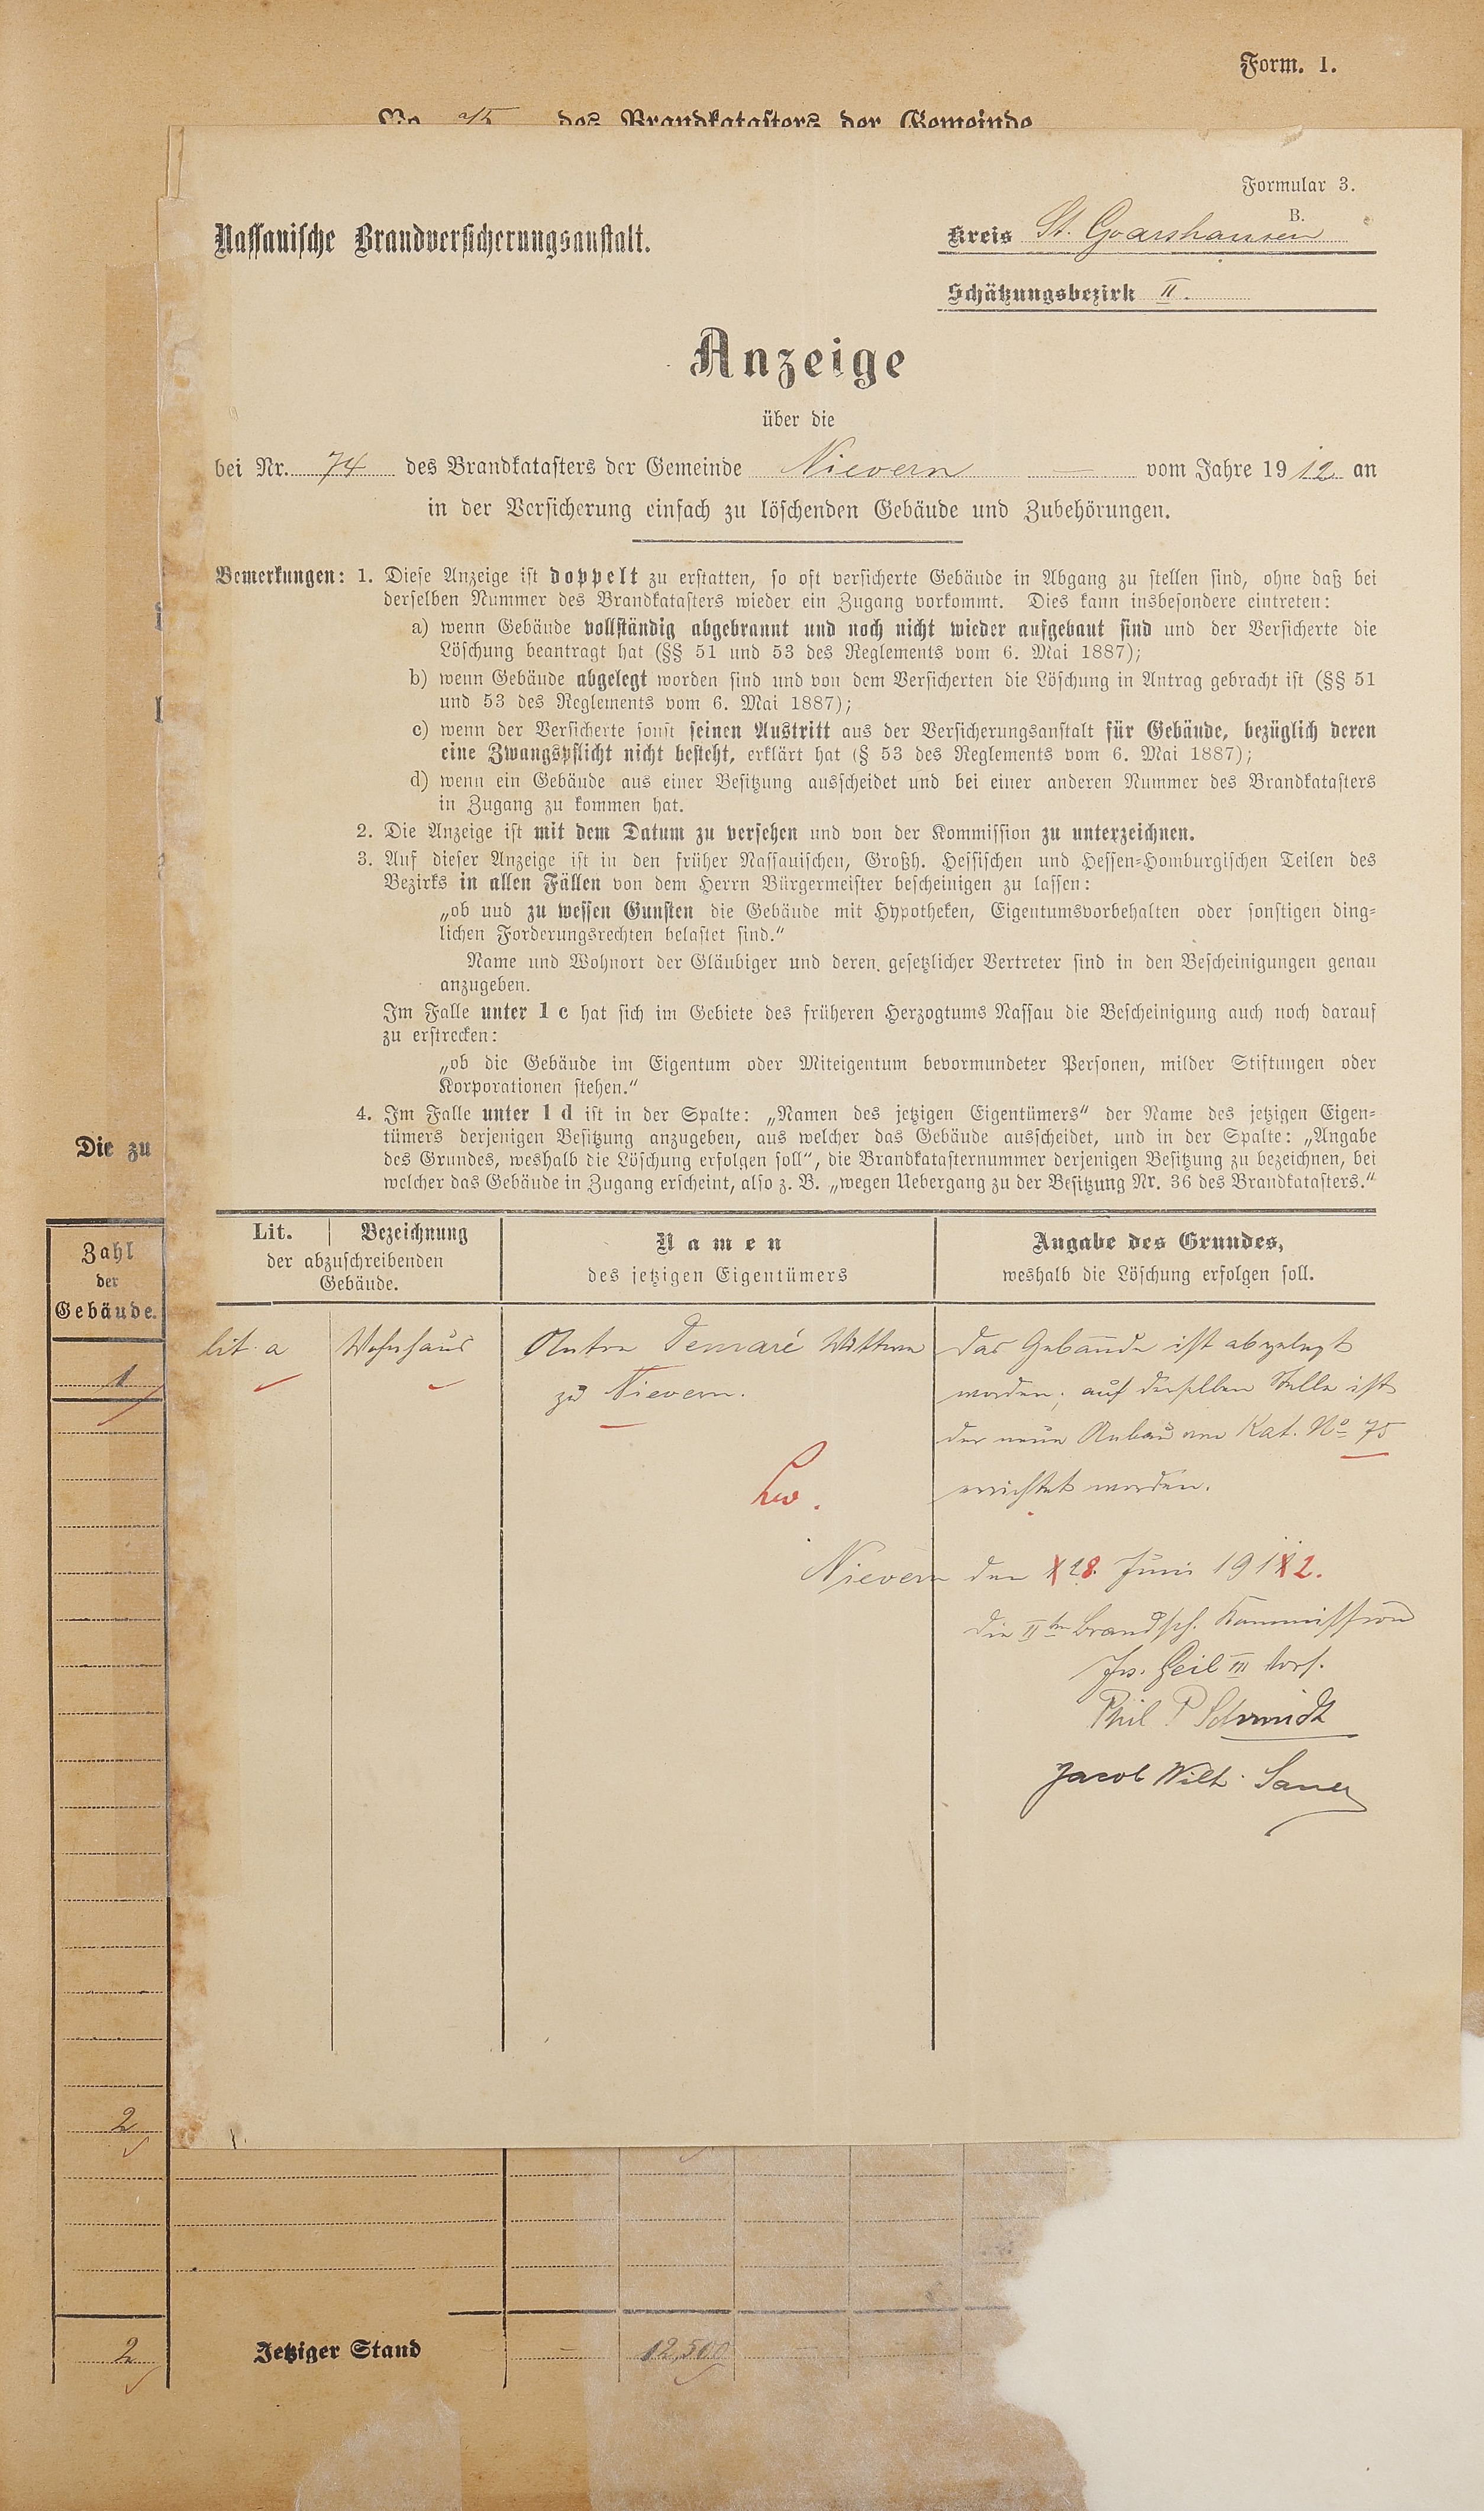 Form. 1.
No 75 des Brandkatasters der Gemeinde
Formular 3.
B.
Nassauische Brandversicherungsanstalt.
Kreis St. Goarshausen
Schätzungsbezirk II.
Anzeige
über die
bei Nr. 74 des Brandkatasters der Gemeinde Nievern — vom Jahre 1912 an
in der Versicherung einfach zu löschenden Gebäude und Zubehörungen.
Bemerkungen: 1. Diese Anzeige ist doppelt zu erstatten, so oft versicherte Gebäude in Abgang zu stellen sind, ohne daß bei
derselben Nummer des Brandkatasters wieder ein Zugang vorkommt. Dies kann insbesondere eintreten:
a) wenn Gebäude vollständig abgebrannt und noch nicht wieder aufgebaut sind und der Versicherte die
Löschung beantragt hat (§§ 51 und 53 des Reglements vom 6. Mai 1887);
b) wenn Gebäude abgelegt worden sind und von dem Versicherten die Löschung in Antrag gebracht ist (§§ 51
und 53 des Reglements vom 6. Mai 1887);
c) wenn der Versicherte sonst seinen Austritt aus der Versicherungsanstalt für Gebäude, bezüglich deren
eine Zwangspflicht nicht besteht, erklärt hat (§ 53 des Reglements vom 6. Mai 1887);
d) wenn ein Gebäude aus einer Besitzung ausscheidet und bei einer anderen Nummer des Brandkatasters
in Zugang zu kommen hat.
2. Die Anzeige ist mit dem Datum zu versehen und von der Kommission zu unterzeichnen.
3. Auf dieser Anzeige ist in den früher Nassauischen, Großh. Hessischen und Hessen-Homburgischen Teilen des
Bezirks in allen Fällen von dem Herrn Bürgermeister bescheinigen zu lassen:
„ob und zu wessen Gunsten die Gebäude mit Hypotheken, Eigentumsvorbehalten oder sonstigen ding-
lichen Forderungsrechten belastet sind.“
Name und Wohnort der Gläubiger und deren gesetzlicher Vertreter sind in den Bescheinigungen genau
anzugeben.
Im Falle unter 1 c hat sich im Gebiete des früheren Herzogtums Nassau die Bescheinigung auch noch darauf
zu erstrecken:
„ob die Gebäude im Eigentum oder Miteigentum bevormundeter Personen, milder Stiftungen oder
Korporationen stehen.“
4. Im Falle unter 1 d ist in der Spalte: „Namen des jetzigen Eigentümers“ der Name des jetzigen Eigen-
tümers derjenigen Besitzung anzugeben, aus welcher das Gebäude ausscheidet, und in der Spalte: „Angabe
des Grundes, weshalb die Löschung erfolgen soll“, die Brandkatasternummer derjenigen Besitzung zu bezeichnen, bei
welcher das Gebäude in Zugang erscheint, also z. B. „wegen Uebergang zu der Besitzung Nr. 36 des Brandkatasters.“
Die zu
Zahl
der
Gebäude.
1
2
2
Lit. Bezeichnung
der abzuschreibenden
Gebäude.
Namen
des jetzigen Eigentümers
Angabe des Grundes,
weshalb die Löschung erfolgen soll.
lit. a Wohnhaus
Anton Demaré Wittwe
zu Nievern.
das Gebäude ist abgelegt
worden; auf derselben Stelle ist
der neue Anbau von Kat. No 75
errichtet worden.
Nievern den 28. Juni 1912.
die IIte Brandsch. Kommission
Jos. Geil III Vors.
Phil P Schmidt
Jacob Wilh. Sauer
Jetziger Stand
— 12,500 —